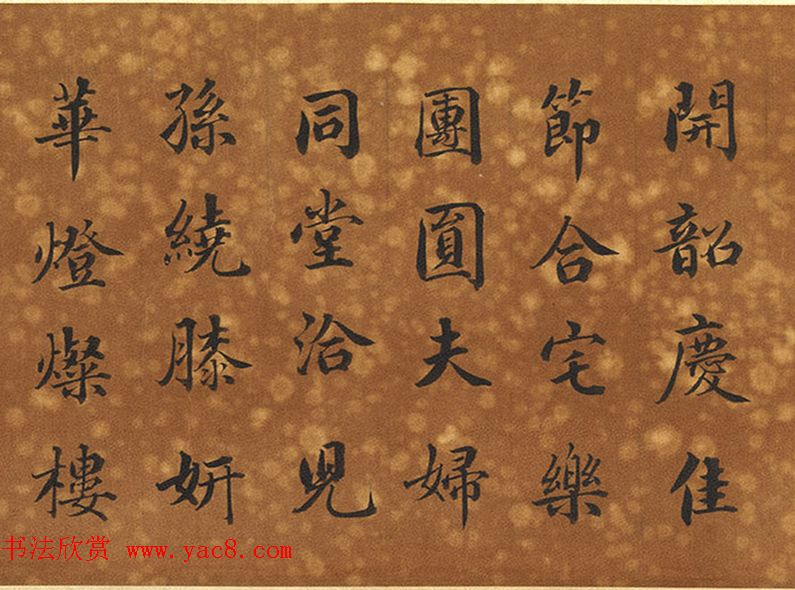 開韶慶佳
節合宅樂
團圓夫婦
同堂洽兒
孫繞膝妍
華燈燦樓
书法欣赏 www.yac8.com